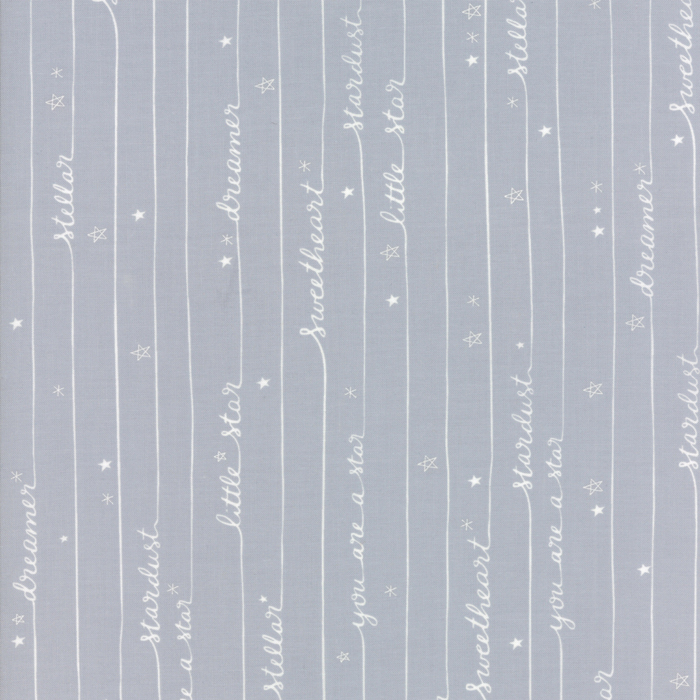 dreamer
stellar
stardust
e a star
dreamer
little star
stellar
sweetheart
stardust
you are a star
little star
sweetheart
stellar
stardust
you are a star
dreamer
sweethe
stardust